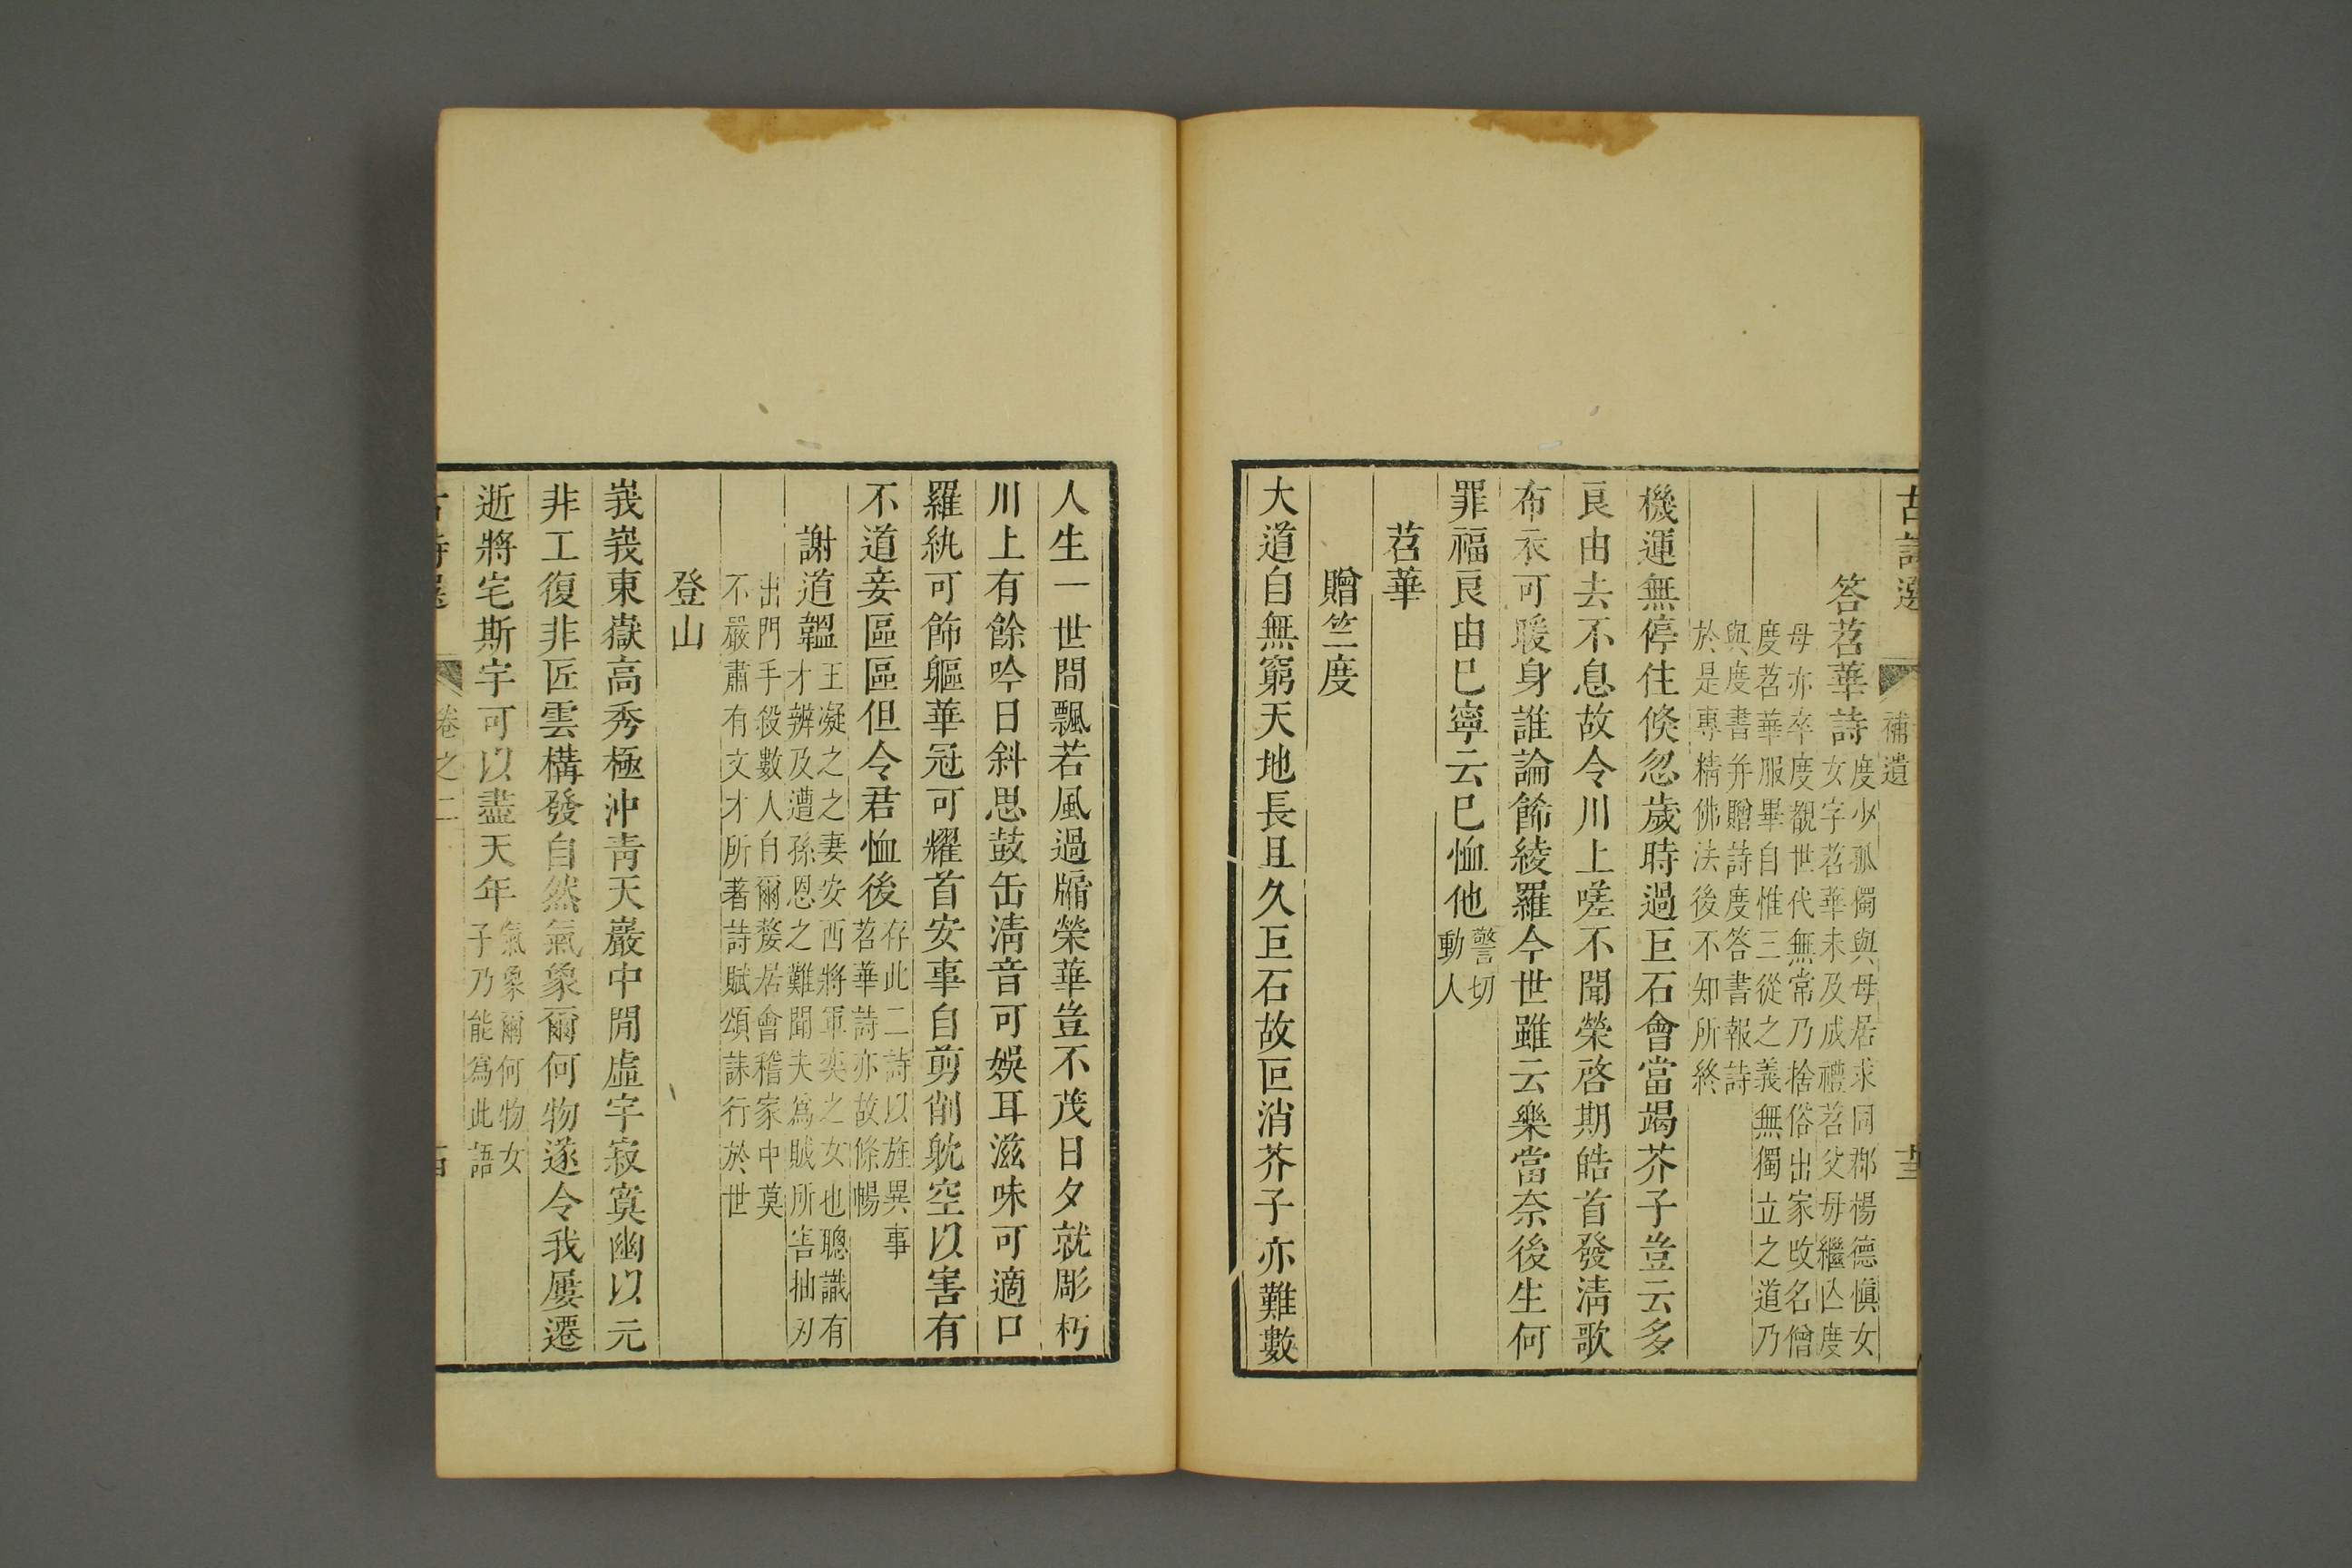 古詩選
補遺
答苕華詩度少孤獨與母居求同郡楊德愼女
女字苕華未及成禮苕父母繼亾度
母亦卒度覩世代無常乃捨俗出家改名僧
度苕華服畢自惟三從之義無獨立之道乃
與度書并贈詩度答書報詩
於是專精佛法後不知所終
機運無停住倐忽歲時過巨石會當竭芥子豈云多
良由去不息故令川上嗟不聞榮啓期皓首發淸歌
布衣可暖身誰論飾綾羅今世雖云樂當奈後生何
罪福良由巳寧云巳恤他警切
動人
苕華
贈竺度
大道自無窮天地長且久巨石故叵消芥子亦難數
人生一世間飄若風過牖榮華豈不茂日夕就彫朽
川上有餘吟日斜思鼓缶淸音可娛耳滋味可適口
羅紈可飾軀華冠可耀首安事自剪削躭空以害有
不道妾區區但令君恤後存此二詩以旌異事
苕華詩亦故條暢
謝道韞王凝之之妻安西將軍奕之女也聰識有
才辨及遭孫恩之難聞夫爲賊所害抽刃
出門手殺數人自爾嫠居會稽家中莫
不嚴肅有文才所著詩賦頌誄行於世
登山
峩峩東嶽高秀極沖靑天巖中閒虛宇寂寞幽以元
非工復非匠雲構發自然氣象爾何物遂令我屢遷
逝將宅斯宇可以盡天年氣象爾何物女
子乃能爲此語
卷之二